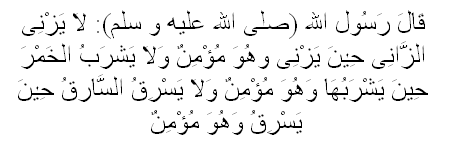 قَالَ رَسُول الله (صلى الله عليه و سلم): لا يَزْنِى
الزَّانِى حِيْنَ يَزْنِى وهُوَ مُؤْمِنٌ ولا يَشْرَبُ الخَمْرَ
حِينَ يَشْرَبُهَا وَهُوَ مُؤْمِنٌ ولا يَسْرِقُ السَّارِقُ حِيْنَ
يَسْرِقُ وَهُوَ مُؤْمِنٌ